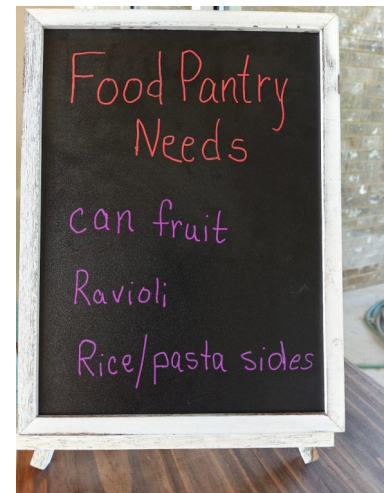 Food Pantry
Needs
can fruit
Ravioli
Rice/pasta sides